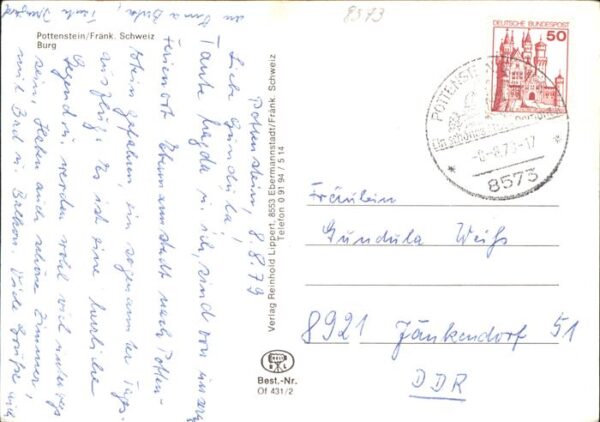 8573
Pottenstein/Fränk. Schweiz
Burg
Pottenstein, 8.8.79
Liebe Gundula!
Tante Magda u. ich, sind von unserm
Ferienort Ebermannstadt nach Potten-
stein gefahren, ein sogenannter Tages-
ausflug. Es ist eine herrliche
Gegend u. werden wohl viel unterwegs
sein. Haben auch schöne Zimmer,
mit Bad u. Balkon. Viele Grüße auch
an Oma Tante
Verlag Reinhold Lippert, 8553 Ebermannstadt/Fränk. Schweiz
Telefon 0 91 94 / 5 14
Best.-Nr.
Of 431/2
DEUTSCHE BUNDESPOST
50
POTTENSTEIN
8573
Fräulein
Gundula Weiß
8921 Jänkendorf 51
DDR